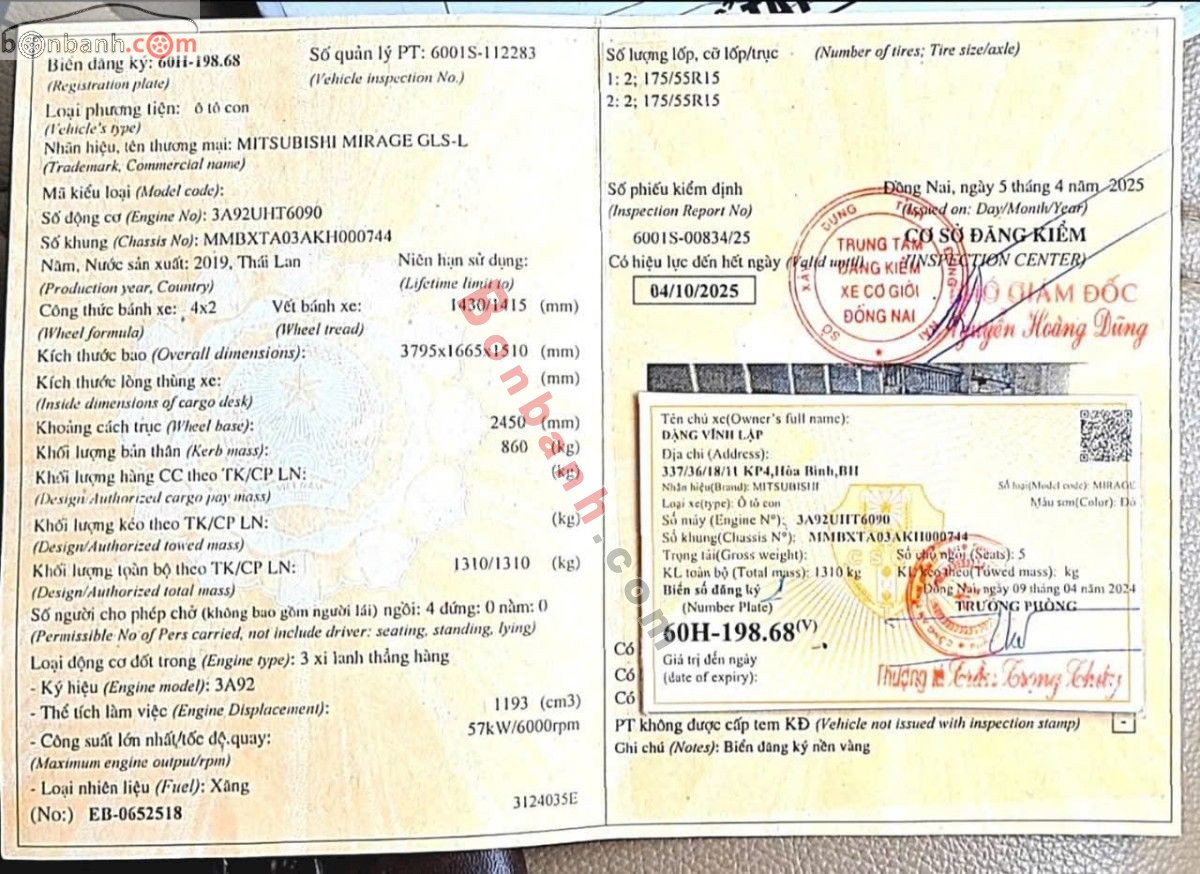 bonbanh.com
Biển đăng ký: 60H-198.68
Số quản lý PT: 6001S-112283
(Registration plate)
(Vehicle inspection No.)
Loại phương tiện: ô tô con
(Vehicle's type)
Nhãn hiệu, tên thương mại: MITSUBISHI MIRAGE GLS-L
(Trademark, Commercial name)
Mã kiểu loại (Model code):
Số động cơ (Engine No): 3A92UHT6090
Số khung (Chassis No): MMBXTA03AKH000744
Năm, Nước sản xuất: 2019, Thái Lan
Niên hạn sử dụng:
(Production year, Country)
(Lifetime limit to)
Công thức bánh xe: 4x2
Vết bánh xe: 1430/1415 (mm)
(Wheel formula)
(Wheel tread)
Kích thước bao (Overall dimensions): 3795x1665x1510 (mm)
Kích thước lòng thùng xe: (mm)
(Inside dimensions of cargo desk)
Khoảng cách trục (Wheel base): 2450 (mm)
Khối lượng bản thân (Kerb mass): 860 (kg)
Khối lượng hàng CC theo TK/CP LN: (kg)
(Design/Authorized cargo pay mass)
Khối lượng kéo theo TK/CP LN: (kg)
(Design/Authorized towed mass)
Khối lượng toàn bộ theo TK/CP LN: 1310/1310 (kg)
(Design/Authorized total mass)
Số người cho phép chở (không bao gồm người lái) ngồi: 4 đứng: 0 nằm: 0
(Permissible No of Pers carried, not include driver: seating, standing, lying)
Loại động cơ đốt trong (Engine type): 3 xi lanh thẳng hàng
- Ký hiệu (Engine model): 3A92
- Thể tích làm việc (Engine Displacement): 1193 (cm3)
- Công suất lớn nhất/tốc độ quay: 57kW/6000rpm
(Maximum engine output/rpm)
- Loại nhiên liệu (Fuel): Xăng
(No:) EB-0652518
3124035E
Số lượng lốp, cỡ lốp/trục (Number of tires; Tire size/axle)
1: 2; 175/55R15
2: 2; 175/55R15
Số phiếu kiểm định
(Inspection Report No)
6001S-00834/25
Có hiệu lực đến hết ngày (Valid until)
04/10/2025
Đồng Nai, ngày 5 tháng 4 năm 2025
(Issued on: Day/Month/Year)
CƠ SỞ ĐĂNG KIỂM
(INSPECTION CENTER)
TRUNG TÂM
ĐĂNG KIỂM
XE CƠ GIỚI
ĐỒNG NAI
PHÓ GIÁM ĐỐC
Nguyễn Hoàng Dũng
Tên chủ xe(Owner's full name):
ĐẶNG VĨNH LẬP
Địa chỉ (Address):
337/36/18/11 KP4,Hòa Bình,BH
Nhãn hiệu(Brand): MITSUBISHI
Số loại(Model code): MIRAGE
Loại xe(type): Ô tô con
Màu sơn(Color): Đỏ
Số máy (Engine N°): 3A92UHT6090
Số khung(Chassis N°): MMBXTA03AKH000744
Trọng tải(Gross weight):
Số chỗ ngồi (Seats): 5
KL toàn bộ (Total mass): 1310 kg
KL kéo theo(Towed mass): kg
Biển số đăng ký
Đồng Nai, ngày 09 tháng 04 năm 2024
(Number Plate)
TRƯỞNG PHÒNG
60H-198.68(V)
Giá trị đến ngày
(date of expiry):
Thượng tá Trần Trọng Thủy
Có
Có
Có
PT không được cấp tem KĐ (Vehicle not issued with inspection stamp) -
Ghi chú (Notes): Biển đăng ký nền vàng
Bonbanh.com